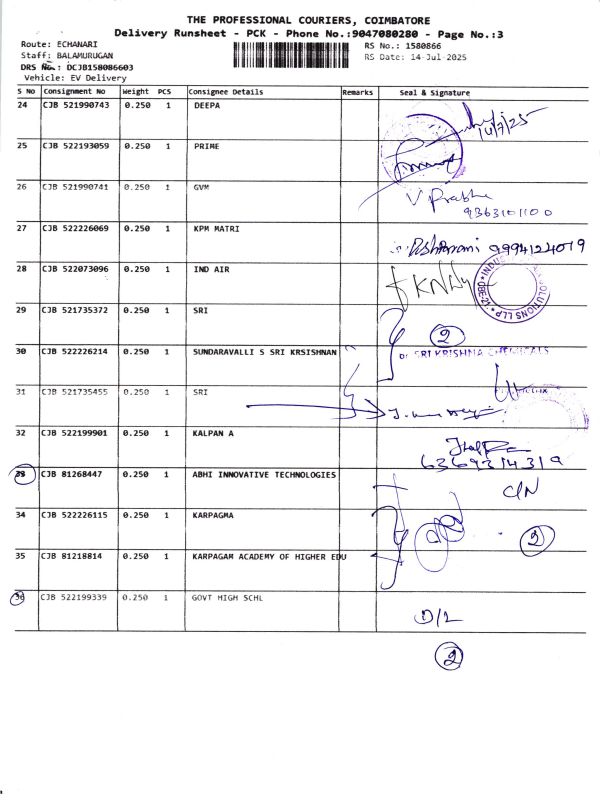 THE PROFESSIONAL COURIERS, COIMBATORE
Delivery Runsheet - PCK - Phone No.:9047080280 - Page No.:3
Route: ECHANARI
RS No.: 1580866
Staff: BALAMURUGAN
RS Date: 14-Jul-2025
DRS No.: DCJB158086603
Vehicle: EV Delivery
S No Consignment No Weight PCS Consignee Details Remarks Seal & Signature
24 CJB 521990743 0.250 1 DEEPA
14/7/25
25 CJB 522193059 0.250 1 PRIME
26 CJB 521990741 0.250 1 GVM V Prabhu
9363101100
27 CJB 522226069 0.250 1 KPM MATRI
9994124019
28 CJB 522073096 0.250 1 IND AIR
SOLUTIONS LLP
29 CJB 521735372 0.250 1 SRI
2
30 CJB 522226214 0.250 1 SUNDARAVALLI S SRI KRSISHNAN SRI KRISHNA CHEMICALS
31 CJB 521735455 0.250 1 SRI
32 CJB 522199901 0.250 1 KALPAN A
6369314319
33 CJB 81268447 0.250 1 ABHI INNOVATIVE TECHNOLOGIES
C/N
34 CJB 522226115 0.250 1 KARPAGMA
2
35 CJB 81218814 0.250 1 KARPAGAM ACADEMY OF HIGHER EDU
36 CJB 522199339 0.250 1 GOVT HIGH SCHL
D/L
2